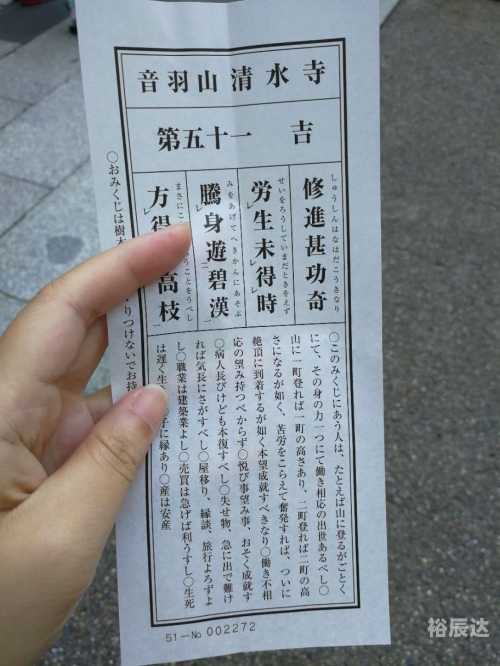 音羽山清水寺
第五十一 吉
しゅうしんはなはだこうきなり
修進甚功奇
せいをろうしていまだときをえず
労生未得時
みをあげてへきかんにあそぶ
騰身遊碧漢
まさにこ うことをうべし
方得 高枝
〇このみくじにあう人は、たとえば山に登るがごとく
にて、その身の力一つにて働き相応の出世あるべし〇
山に一町登れば一町の高さあり、二町登れば二町の高
さになるが如く、苦労をこらえて奮発すれば、ついに
絶頂に到着するが如く本望成就すべきなり〇働き不相
応の望み持つべからず〇悦び事望み事、おそく成就す
〇病人長びけども本復すべし〇失せ物、急に出で難け
れば気長にさがすべし〇屋移り、縁談、旅行よろずよ
し〇職業は建築業よし〇売買は急げば利うすし〇生死
は遅く生 子に縁あり〇産は安産
〇おみくじは樹木 りつけないでお持
51-No 002272
裕辰达